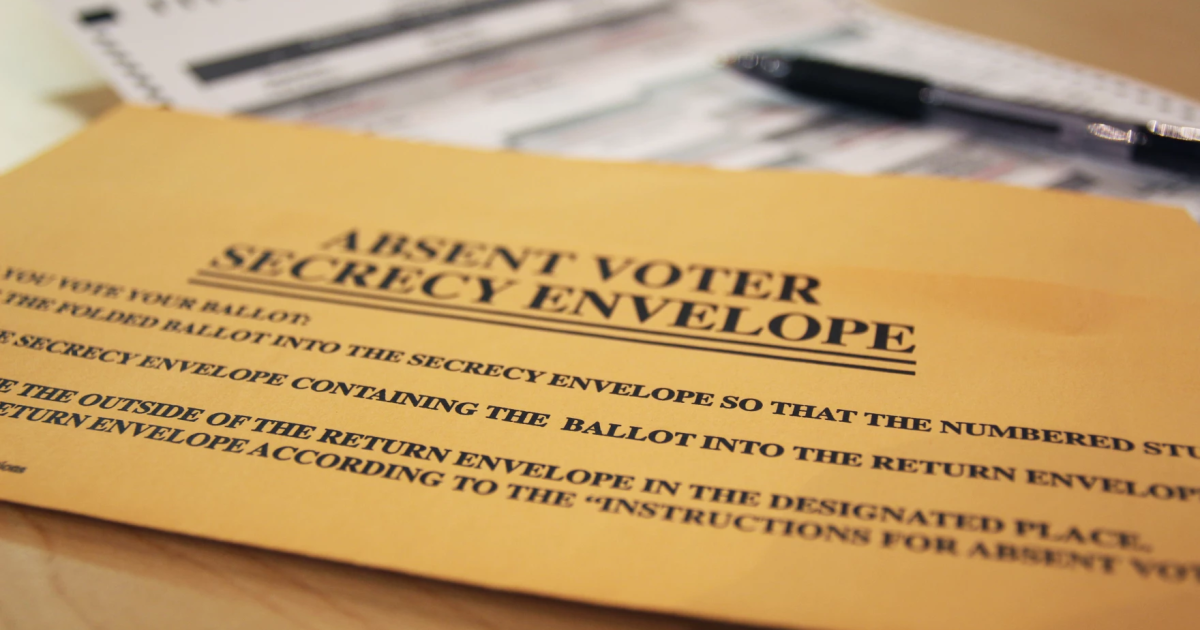 ABSENT VOTER
SECRECY ENVELOPE
YOU VOTE YOUR BALLOT:
THE FOLDED BALLOT INTO THE SECRECY ENVELOPE SO THAT THE NUMBERED STU
E SECRECY ENVELOPE CONTAINING THE BALLOT INTO THE RETURN ENVELOP
E THE OUTSIDE OF THE RETURN ENVELOPE IN THE DESIGNATED PLACE.
ETURN ENVELOPE ACCORDING TO THE “INSTRUCTIONS FOR ABSENT VOT